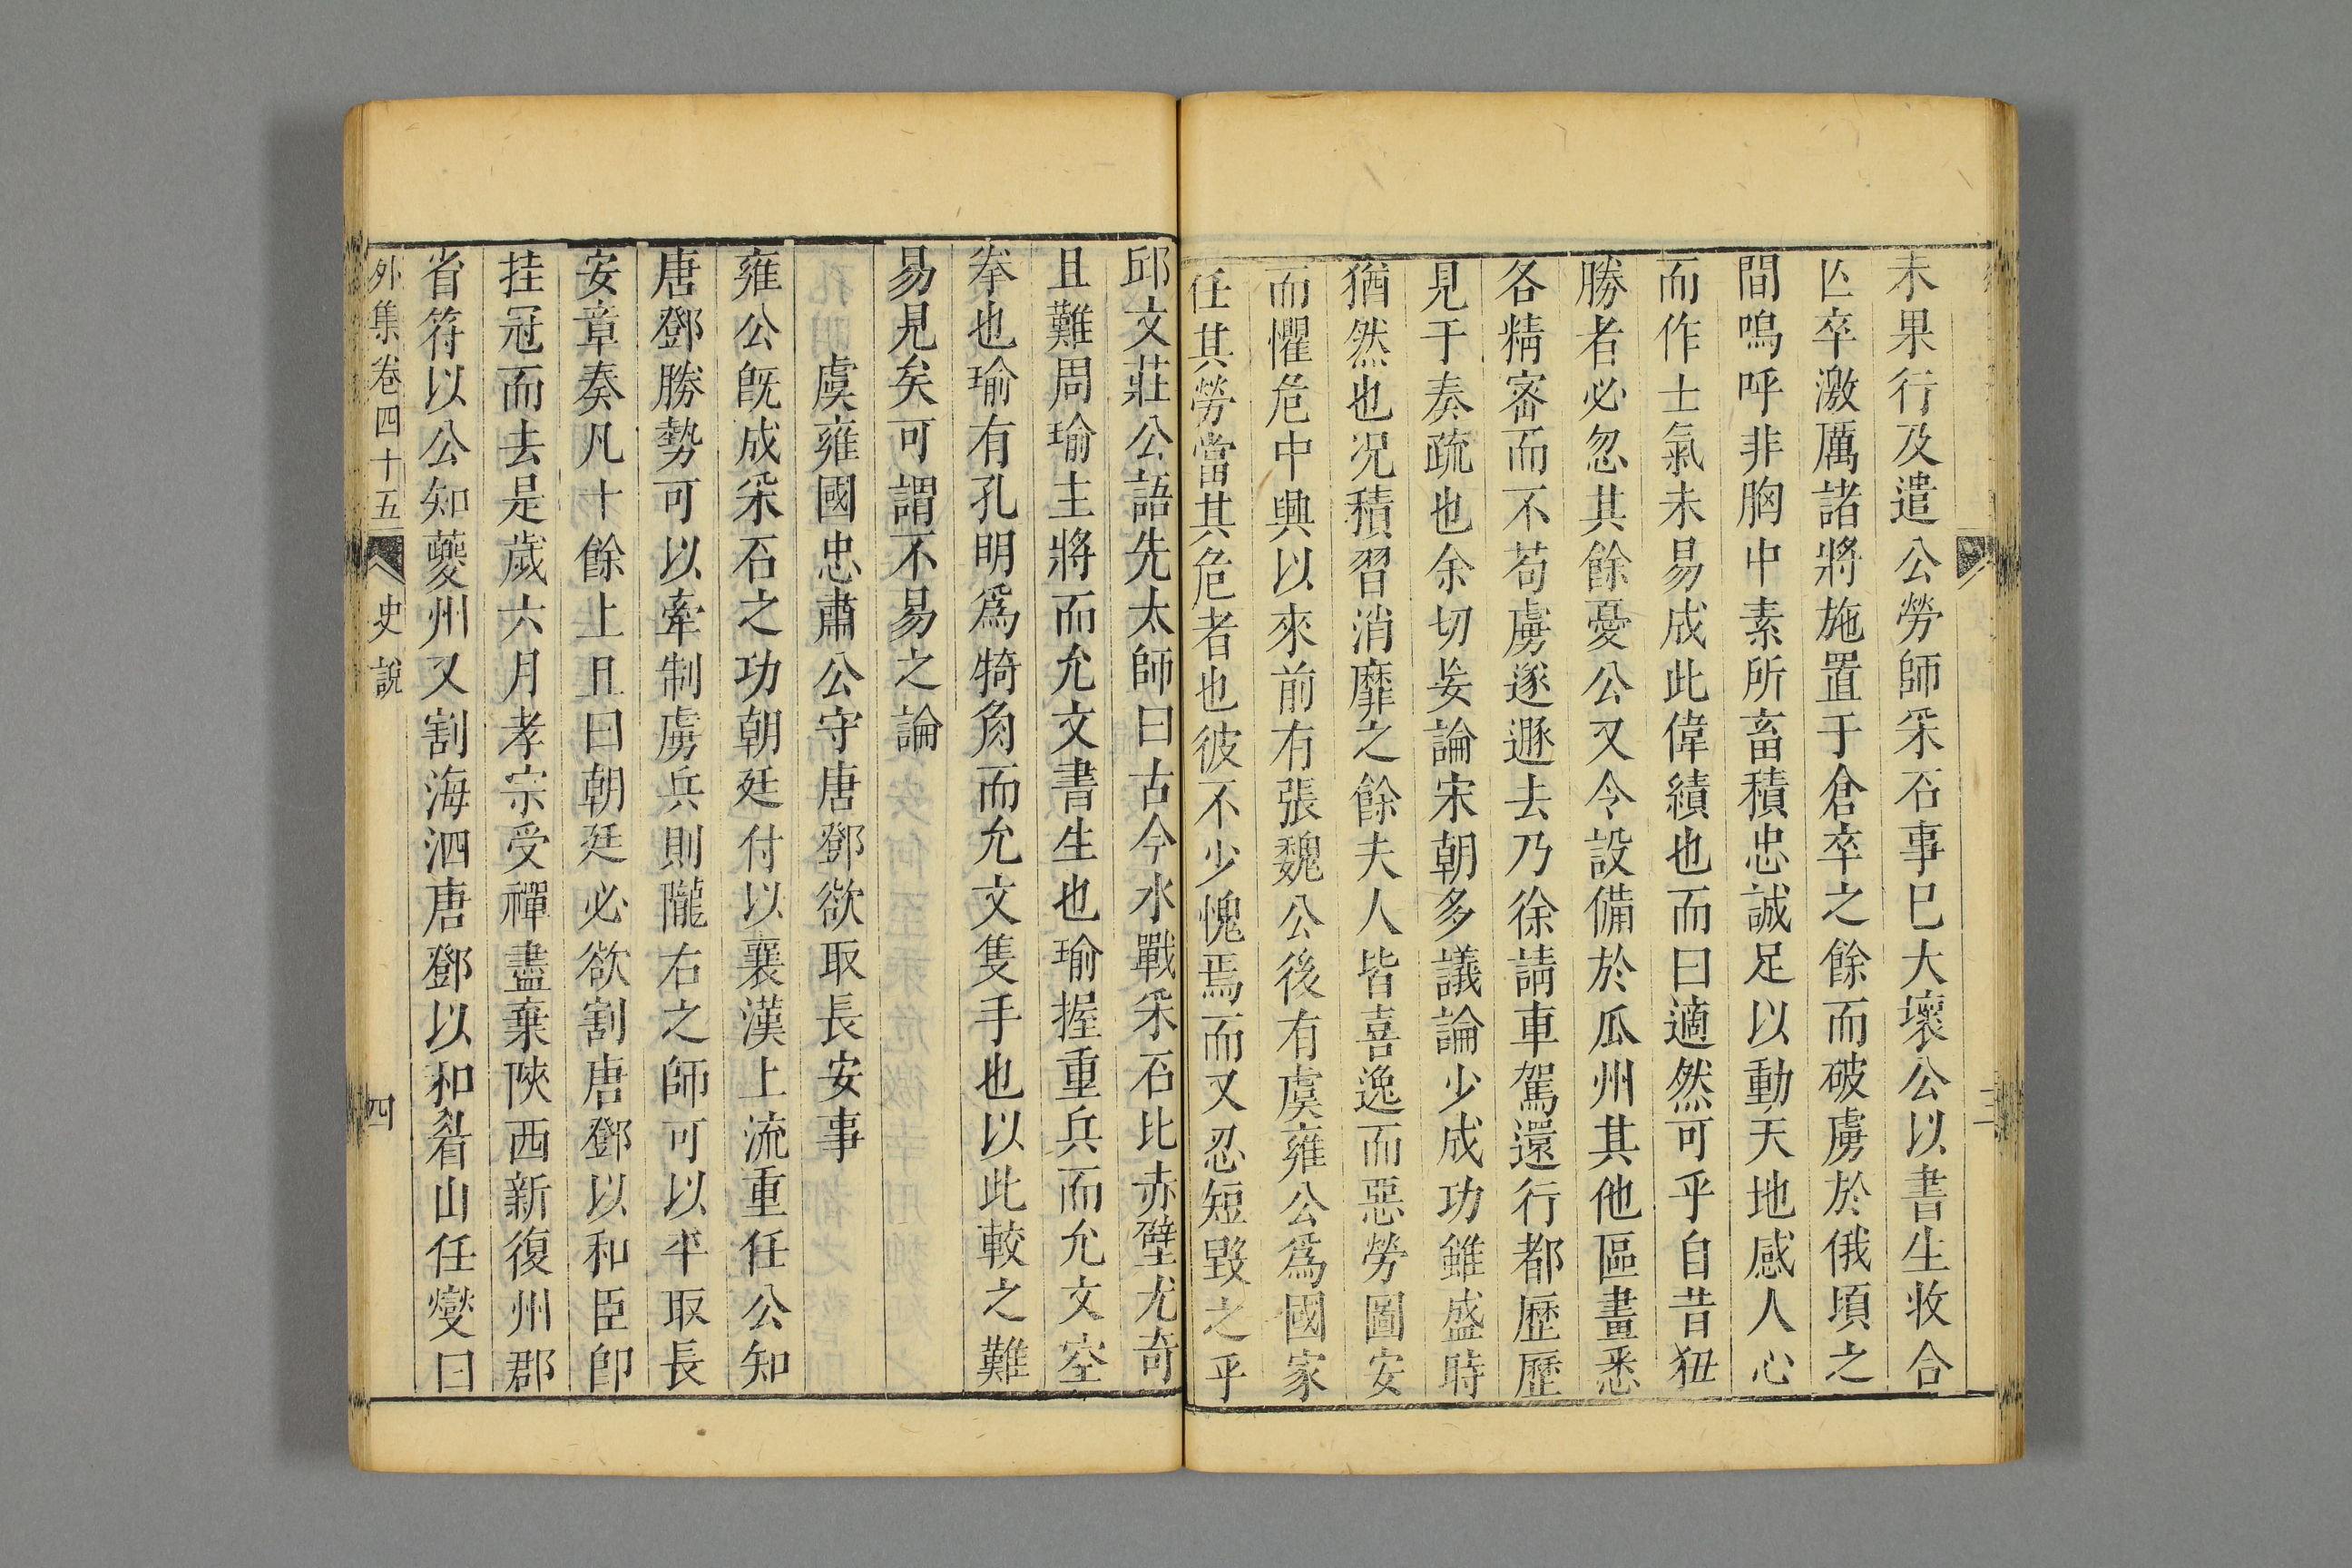 未果行及遣公勞師采石事已大壞公以書生收合
亾卒激厲諸將施置于倉卒之餘而破虜於俄頃之
間嗚呼非胸中素所畜積忠誠足以動天地感人心
而作士氣未易成此偉績也而曰適然可乎自昔狃
勝者必忽其餘憂公又令設備於瓜州其他區畫悉
各精宻而不苟虜遂遯去乃徐請車駕還行都歷歷
見于奏疏也余切妄論宋朝多議論少成功雖盛時
猶然也况積習消靡之餘夫人皆喜逸而惡勞圖安
而懼危中興以來前有張魏公後有虞雍公爲國家
任其勞當其危者也彼不少愧焉而又忍短毀之乎
邱文莊公語先太師曰古今水戰采石比赤壁尤奇
且難周瑜主將而允文書生也瑜握重兵而允文空
拳也瑜有孔明爲犄角而允文隻手也以此較之難
易見矣可謂不易之論
虞雍國忠肅公守唐鄧欲取長安事
雍公旣成采石之功朝廷付以襄漢上流重任公知
唐鄧勝勢可以牽制虜兵則隴右之師可以平取長
安章奏凡十餘上且曰朝廷必欲割唐鄧以和臣卽
挂冠而去是歲六月孝宗受禪盡棄陝西新復州郡
省符以公知夔州又割海泗唐鄧以和眉山任燮曰
外集卷四十五
史說
四